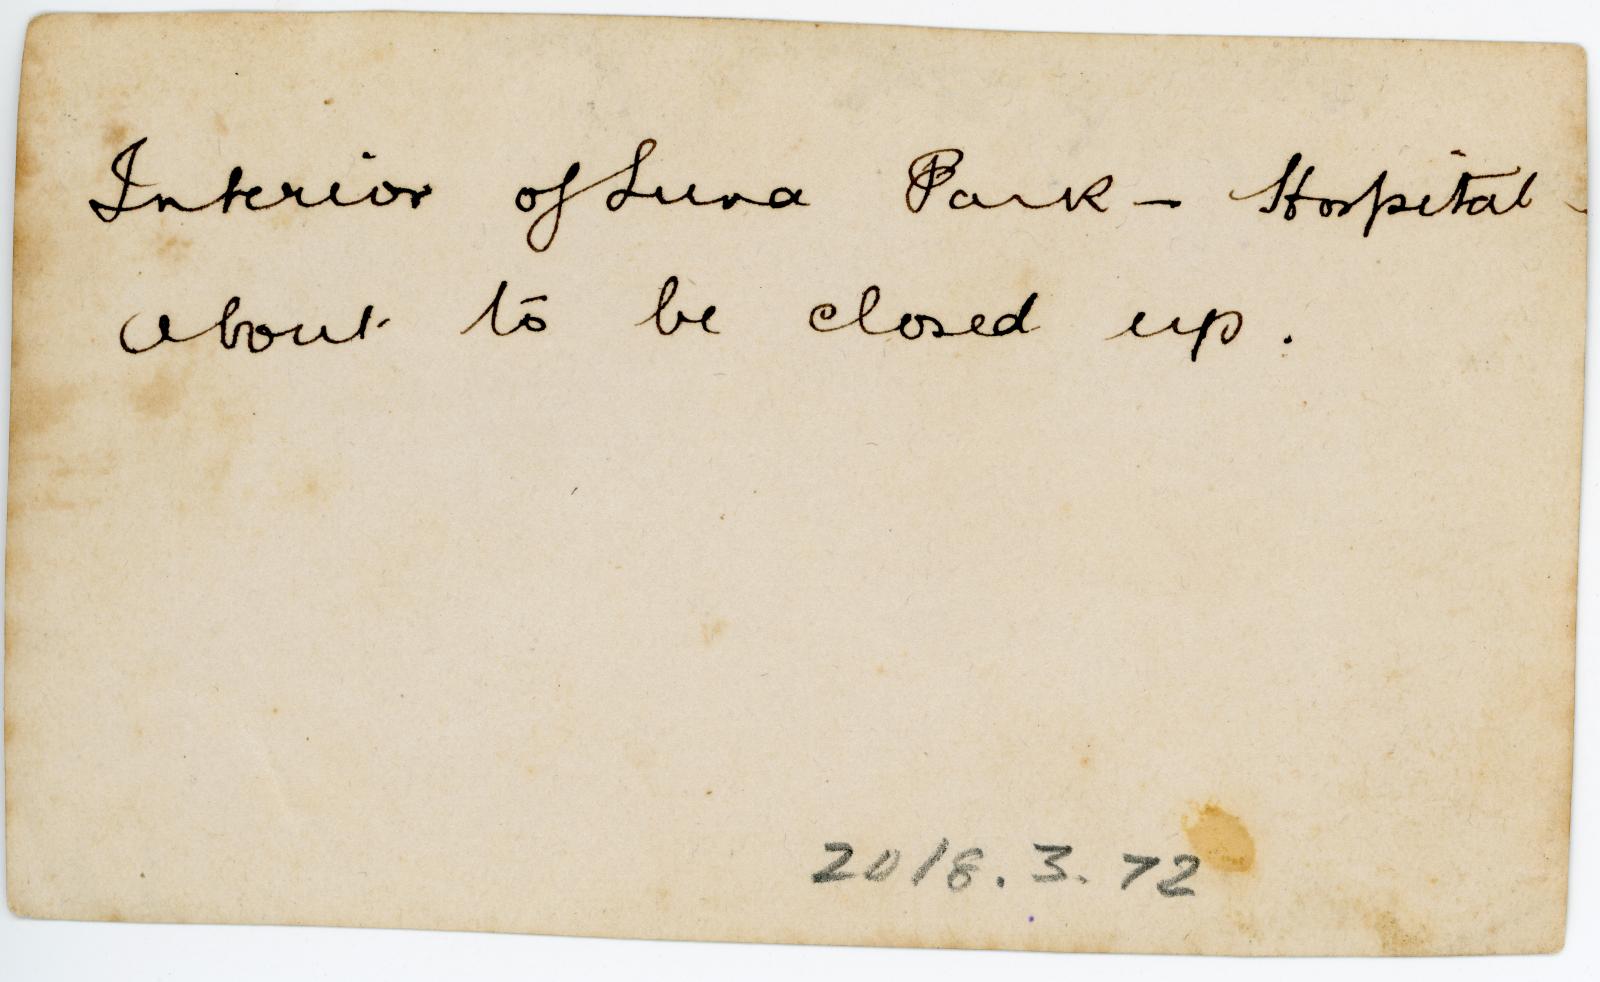 Interior of Luna Park - Hospital -
about to be closed up.
2018.3.72